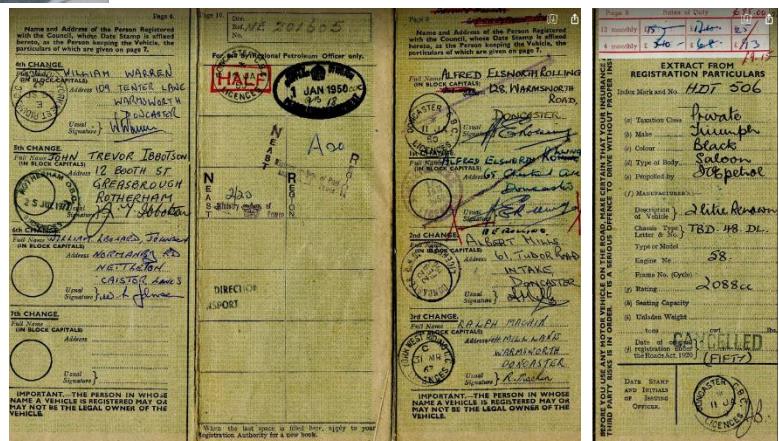 Page 6.
Name and Address of the Person Registered
with the Council, whose Date Stamp is affixed
hereto, as the Person keeping the Vehicle, the
particulars of which are given on page 7.
4th CHANGE.
Full Name WILLIAM WARREN
(IN BLOCK CAPITALS)
Address 109 TENTER LANE
WARMSWORTH
DONCASTER
Usual
Signature
5th CHANGE.
Full Name JOHN TREVOR IBBOTSON
(IN BLOCK CAPITALS)
Address 12 BOOTH ST
GREASBROUGH
ROTHERHAM
Usual
Signature
6th CHANGE
Full Name WILLIAM LEONARD JOHNSON
(IN BLOCK CAPITALS)
Address NORMANBY RD
NETTLETON
CAISTOR LANCS
Usual
Signature
7th CHANGE.
Full Name
(IN BLOCK CAPITALS)
Address
Usual
Signature
IMPORTANT.—THE PERSON IN WHOSE
NAME A VEHICLE IS REGISTERED MAY OR
MAY NOT BE THE LEGAL OWNER OF THE
VEHICLE.
Page 10.
201605
For use by Regional Petroleum Officer only.
HALF
LICENCES
1 JAN 1950
N
EAST
REGION
Ministry of
Power
DIRECTION
When the last space is filled here, apply to your
Registration Authority for a new book.
Page 8
Name and Address of the Person Registered
with the Council, whose Date Stamp is affixed
hereto, as the Person keeping the Vehicle, the
particulars of which are given on page 7.
Full Name ALFRED ELSWORTH ROLLING
(IN BLOCK CAPITALS)
Address 128, WARMSWORTH
ROAD,
DONCASTER
Usual
Signature
DONCASTER C.B.C.
LICENCES
1st CHANGE
Full Name ALFRED ELSWORTH
(IN BLOCK CAPITALS)
Address 65
Doncaster
Usual
Signature
2nd CHANGE.
Full Name ALBERT MILLS
(IN BLOCK CAPITALS)
Address 61, TUDOR ROAD
INTAKE,
DONCASTER
Usual
Signature
3rd CHANGE.
Full Name RALPH
(IN BLOCK CAPITALS)
Address MILL LANE
WARMSWORTH
DONCASTER
Usual
Signature
IMPORTANT.—THE PERSON IN WHOSE
NAME A VEHICLE IS REGISTERED MAY OR
MAY NOT BE THE LEGAL OWNER OF THE
VEHICLE.
Rates of Duty
12 monthly
4 monthly
EXTRACT FROM
REGISTRATION PARTICULARS
Index Mark and No. HDT 506
(a) Taxation Class Private
(b) Make Triumph
(c) Colour Black
(d) Type of Body Saloon
(e) Propelled by petrol
(f) MANUFACTURER'S—
Description
of Vehicle 2 litre Renown
Chassis Type
Letter & No. TBD. 48. DL.
Type or Model
Engine No. 58.
Frame No. (Cycle)
(g) Rating 2088cc
(h) Seating Capacity
(i) Unladen Weight
tons cwt lbs.
CANCELLED
Date of original
registration under
the Roads Act, 1920
(FIFTY)
DATE STAMP
AND INITIALS
OF ISSUING
OFFICER.
DONCASTER C.B.C.
LICENCES
BEFORE YOU USE ANY MOTOR VEHICLE ON THE ROAD, MAKE CERTAIN THAT YOUR INSURANCE
THIRD PARTY RISKS IS IN ORDER. IT IS A SERIOUS OFFENCE TO DRIVE WITHOUT PROPER INS